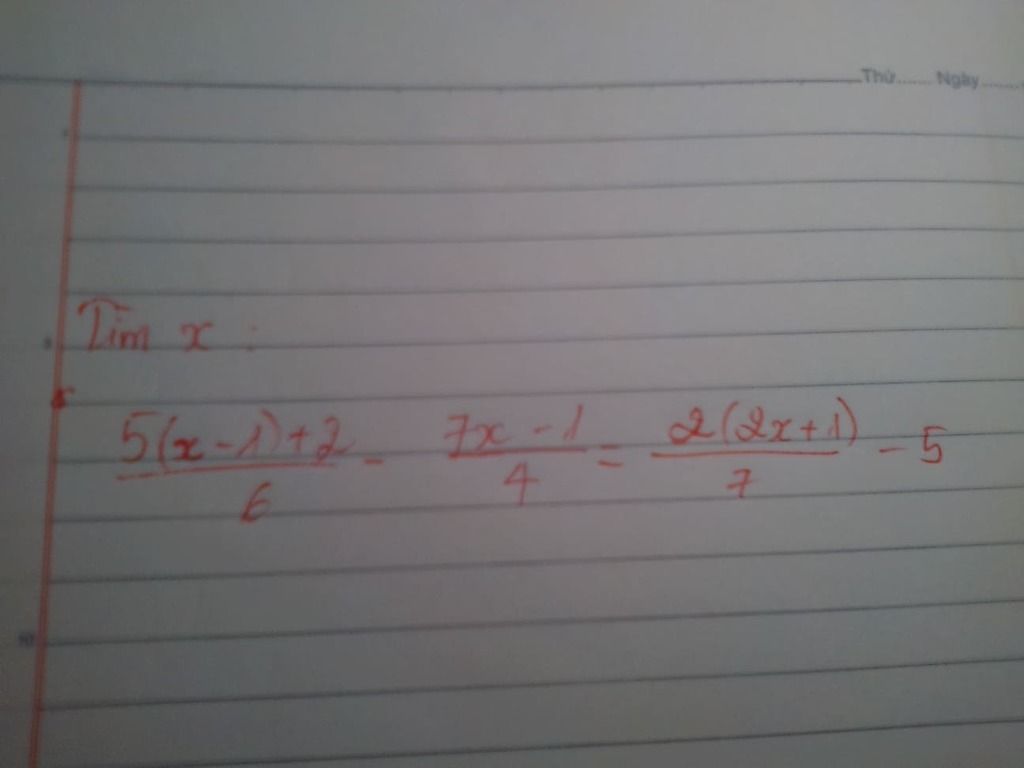 Thứ...... Ngày......
Tìm x :
5(x-1)+2/6 - 7x-1/4 = 2(2x+1)/7 - 5